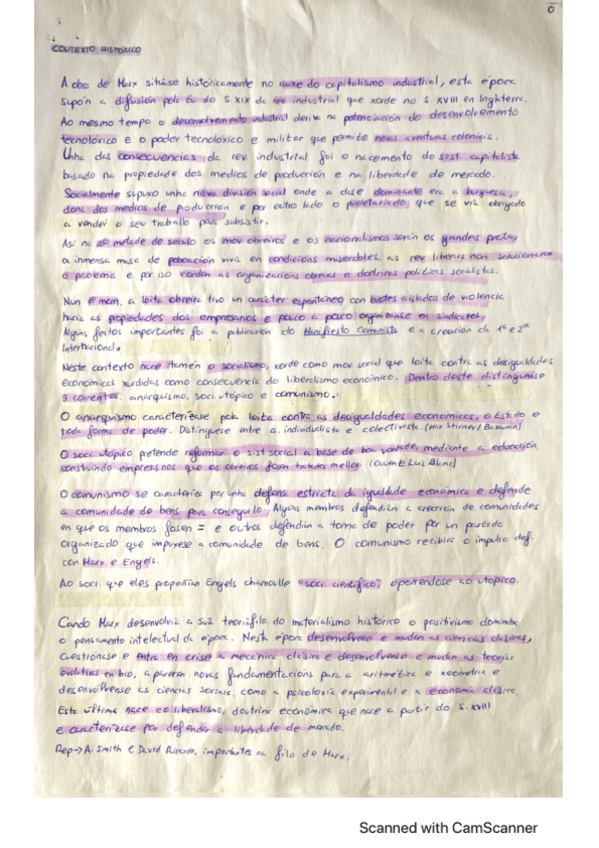 0
CONTEXTO HISTÓRICO
A obc de Marx sitúase historicamente no auxe do capitalismo industrial, esta época
supón a difusión pola Eu do S.XIX da rev industrial que xorde no S. XVIII en Inglterra.
Ao mesmo tempo o desenvolvemento industrial deriva na potenciación do desenvolvemento
tecnolóxico e o poder tecnolóxico e militar que permite novas aventuras coloniais.
Unha das consecuencias da rev industrial foi o nacemento do sist. capitalista
basado na propiedade dos medios de producción e na liberdade do mercado.
Socialmente supuxo unha nova división social onde a clase dominante era a burguesa,
dona dos medios de producción e por outro lado o proletariado, que se vía obrigado
a vender o seu traballo para subsistir.
Así na 2ª metade de século os mov obreiros e os nacionalismos serán os grandes
a inmensa masa de poboación vivía en condicións miserables, as rev liberais non solucionaron
o problema e por iso xorden as organizacións obreiras e doutrinas políticas socialistas.
Nun 1º mom, a loita obreira tivo un carácter espontáneo con brotes aislados de violencia
hacia as propiedades dos empresarios e pouco a pouco organízanse en sindicatos,
Algúns feitos importantes foi a publicación do Manifiesto Comunista e a creación da 1ª e 2ª
Internacional.
Neste contexto nace tamén o socialismo, xorde como mov social que loita contra as desigualdades
económicas xurdidas como consecuencia do liberalismo económico. Dentro deste distínguense
3 correntes, anarquismo, soci utópico e comunismo.
O anarquismo caracterízase pola loita contra as desigualdades económicas, o Estado e
toda forma de poder. Distínguese entre a. individualista e colectivista. (Max Stirner / Bakunin)
O soci. utópico pretende reformar o sist social a base de boa vontade, mediante a educación,
construíndo empresas nas que os obreiros foran tratados mellor. (Owen E Luis Blanc)
O comunismo se caracteriza por unha defensa estricta da igualdade económica e defende
a comunidade de bens para conseguilo. Algúns membros defendían a creación de comunidades
en que os membros fosen = e outros defendían a toma de poder por un partido
organizado que impuxese a comunidade de bens. O comunismo recibira o impulso def.
con Marx e Engels.
Ao soci. que eles propoñían Engels chamoulle "soci. científico", opoñéndose ao utópico.
Cando Marx desenvolvía a súa teoría filo. do materialismo histórico o positivismo dominaba
o pensamento intelectual da época. Nesta época desenvólvense e mudan as ciencias clásicas,
cuestiónase e entra en crise a mecánica clásica e desenvólvense e mudan as teorías
evolutivas en bio, aparecen novas fundamentacións para a aritmética e xeometría e
desenvólvense as ciencias sociais, como a psicoloxía experimental e a economía clásica.
Esta última nace co liberalismo, doutrina económica que nace a partir do S. XVIII
e caracterízase por defender a liberdade de mercado.
Rep-> A. Smith e David Ricardo, importantes na filo de Marx.
Scanned with CamScanner